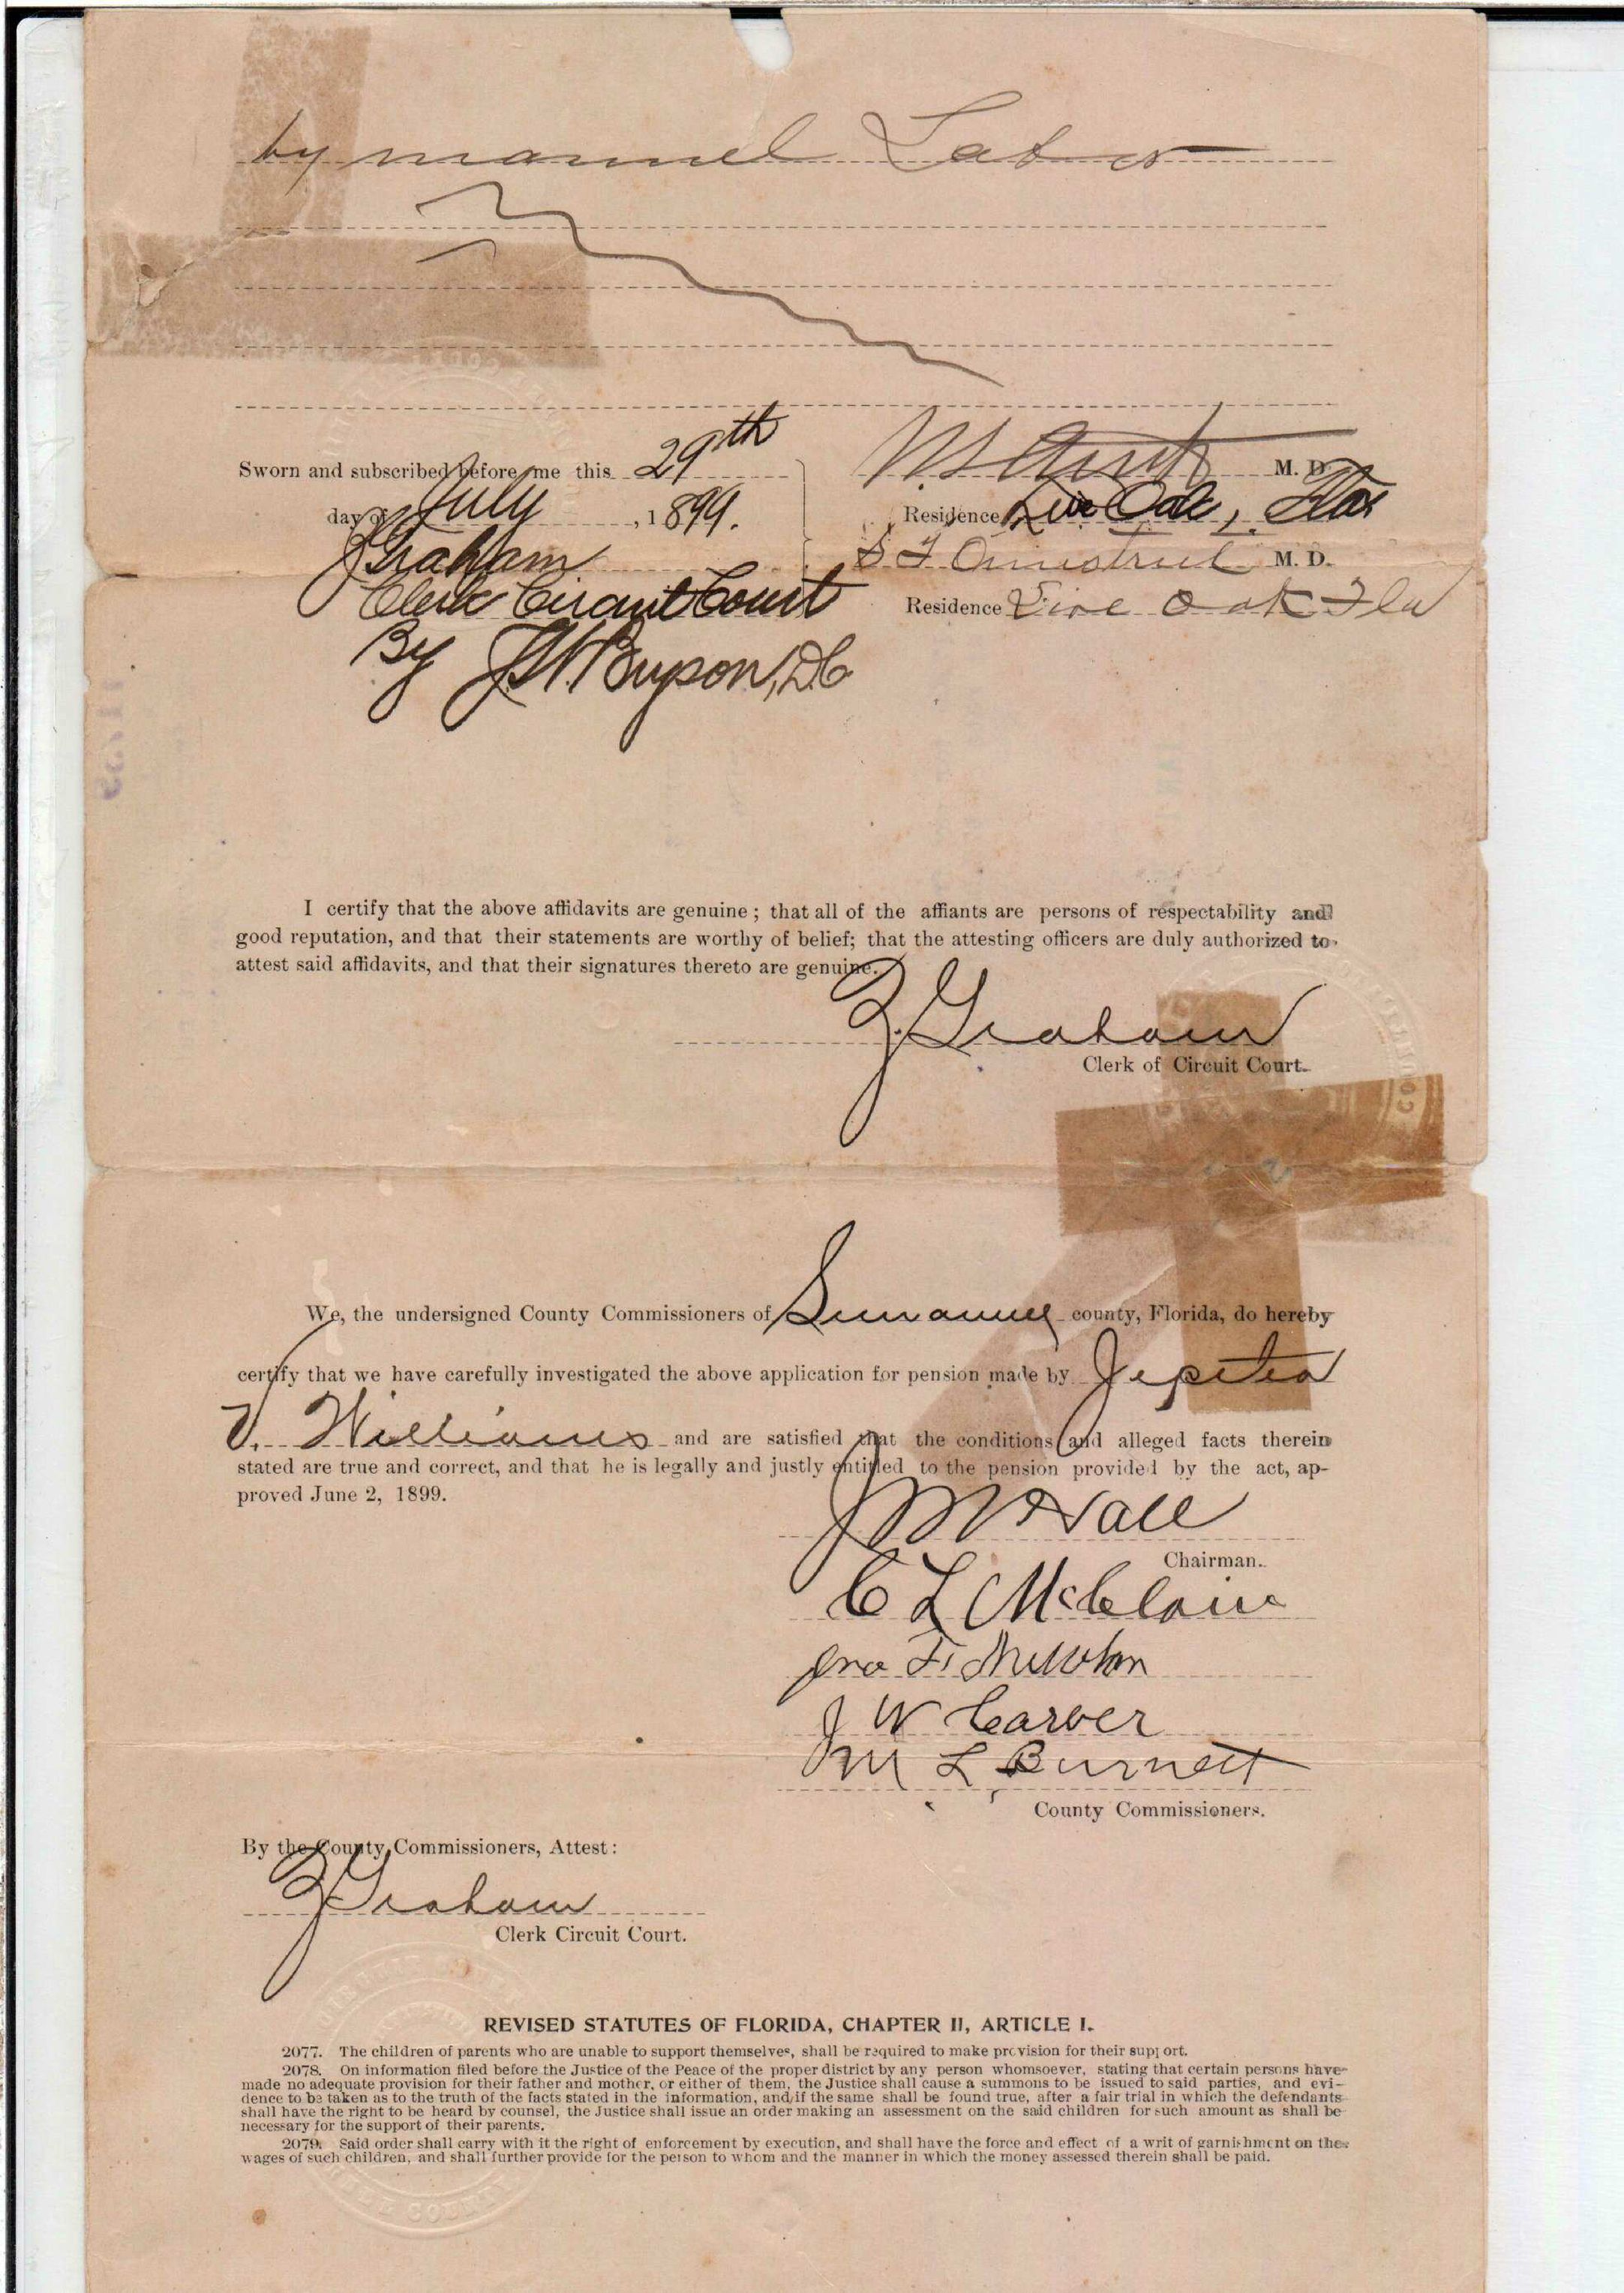 by mannel Labor
Sworn and subscribed before me this 29th
day of July, 1899.
J Graham
Clerk Circuit Court
By J.W. Bryson, D.C.
M. D.
Residence Live Oak, Fla
M. D.
Residence Live Oak Fla
I certify that the above affidavits are genuine; that all of the affiants are persons of respectability and
good reputation, and that their statements are worthy of belief; that the attesting officers are duly authorized to
attest said affidavits, and that their signatures thereto are genuine.
J. Graham
Clerk of Circuit Court.
We, the undersigned County Commissioners of Suwannee county, Florida, do hereby
certify that we have carefully investigated the above application for pension made by Jeptha
V. Williams and are satisfied that the conditions and alleged facts therein
stated are true and correct, and that he is legally and justly entitled to the pension provided by the act, ap-
proved June 2, 1899.
Chairman.
C L McClain
Jno F. Newton
J W Carver
M L Burnett
County Commissioners.
By the County Commissioners, Attest:
J Graham
Clerk Circuit Court.
REVISED STATUTES OF FLORIDA, CHAPTER II, ARTICLE I.
2077. The children of parents who are unable to support themselves, shall be required to make provision for their support.
2078. On information filed before the Justice of the Peace of the proper district by any person whomsoever, stating that certain persons have
made no adequate provision for their father and mother, or either of them, the Justice shall cause a summons to be issued to said parties, and evi-
dence to be taken as to the truth of the facts stated in the information, and if the same shall be found true, after a fair trial in which the defendants
shall have the right to be heard by counsel, the Justice shall issue an order making an assessment on the said children for such amount as shall be
necessary for the support of their parents.
2079. Said order shall carry with it the right of enforcement by execution, and shall have the force and effect of a writ of garnishment on the
wages of such children, and shall further provide for the person to whom and the manner in which the money assessed therein shall be paid.